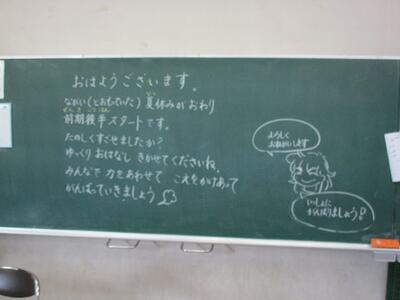 おはようございます。
ながい(とおもっていた)夏休みがおわり
前期後半スタートです。
たのしくすごせましたか?
ゆっくり おはなし きかせてくださいね。
みんなで 力をあわせて こえをかけあって
がんばっていきましょう
よろしく
おねがいします
いっしょに
がんばりましょう!